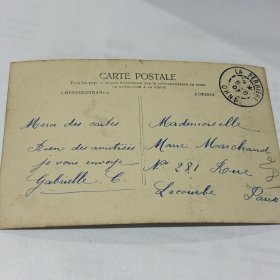 CARTE POSTALE
CORRESPONDANCE
ADRESSE
ORNE
Merci des cartes
Bien des amitiées
je vous envoye
Gabrielle C.
Mademoiselle
Marie Marchand
N° 281 Rue
Lecourbe
Paris